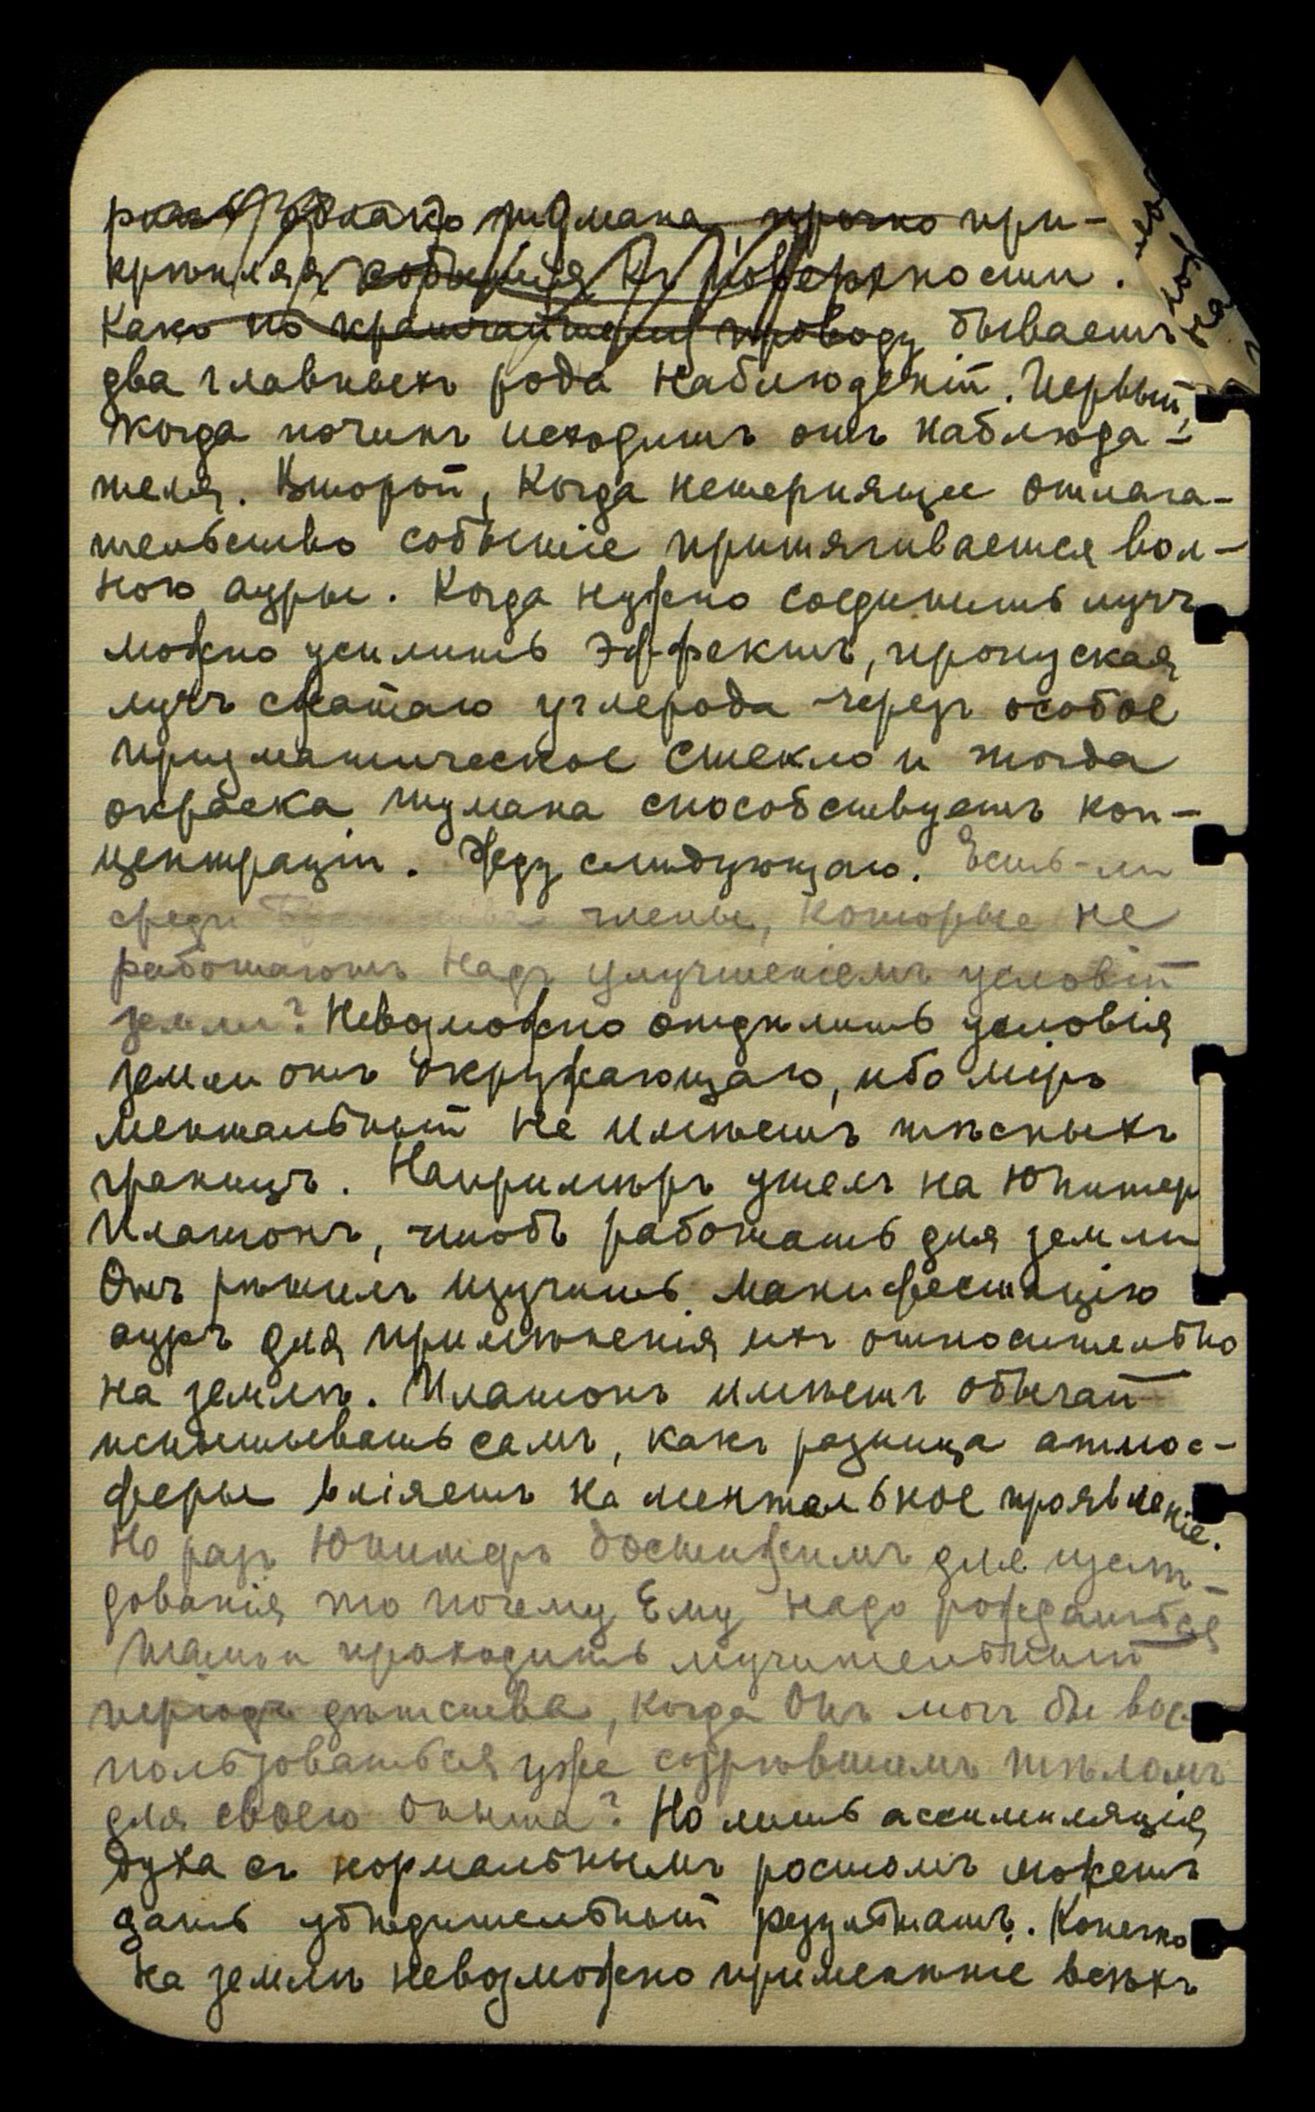 облако тумана, прочно при-
крѣпляя событія къ поверхности.
Какъ по кратчайшему проводу бываетъ
два главныхъ рода наблюденій. Первый,
когда починъ исходитъ отъ наблюда-
теля. Второй, когда нетерпящее отлага-
тельство событіе притягивается вол-
ною ауры. Когда нужно соединить лучъ
можно усилить эффектъ, пропуская
лучъ сжатаго углерода черезъ особое
призматическое стекло и тогда
окраска тумана способствуетъ кон-
центраціи. Жду слѣдующаго. Есть-ли
среди члены, которые не
работаютъ надъ улучшеніемъ условій
земли? Невозможно отдѣлить условія
земли отъ окружающаго, ибо міръ
ментальный не имѣетъ тѣсныхъ
границъ. Напримѣръ ушелъ на Юпитер
Платонъ, чтобъ работать для земли
Онъ рѣшилъ изучить манифестацію
ауръ для примѣненія ихъ относительно
на землѣ. Платонъ имѣетъ обычай
испытывать самъ, какъ разница атмос-
феры вліяетъ на ментальное проявленіе.
Но разъ Юпитеръ достижимъ для изслѣ-
дованія то почему Ему надо рождаться
тамъ и проходить мучительный
періодъ дѣтства, когда Онъ могъ бы вос
пользоваться уже созрѣвшимъ тѣломъ
для своего опыта? Но лишь ассимиляція
духа съ нормальнымъ ростомъ можетъ
дать убѣдительный результатъ. Конечно
на землѣ невозможно примененіе всѣхъ